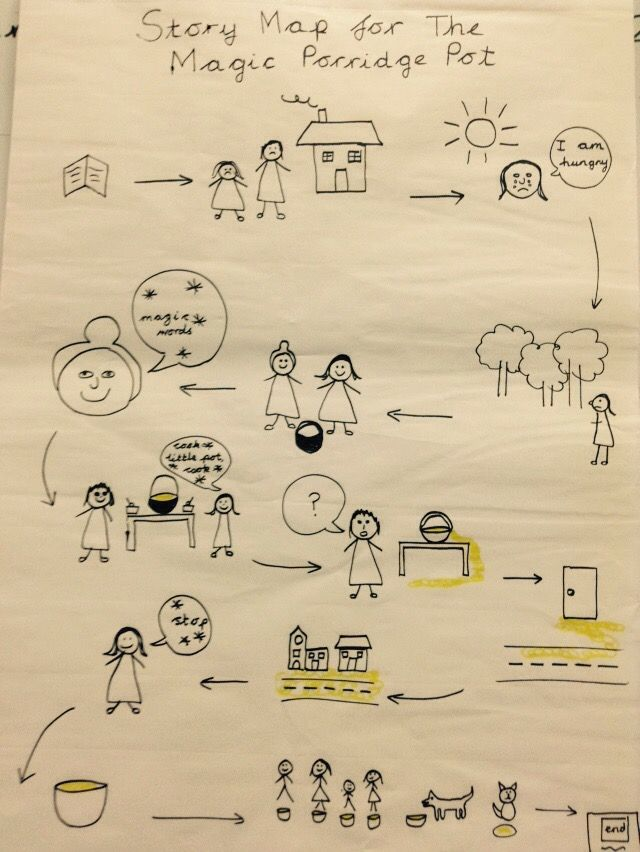 Story Map for The
Magic Porridge Pot
I am
hungry
magic
words
cook
little pot,
cook
?
stop
end